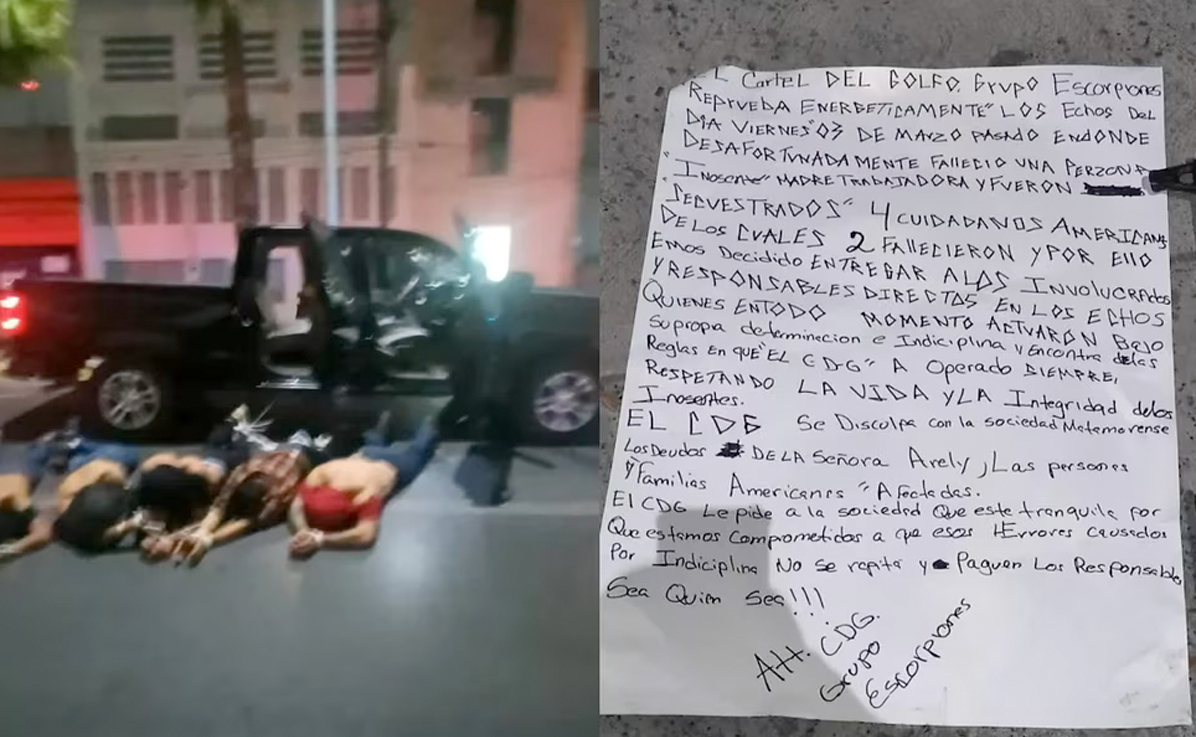 EL Cartel DEL GOLFO. Grupo Escorpiones
REPRUEBA ENERGETICAMENTE" LOS Echos DEL
DIA VIERNES" 03 DE MARZO PASADO ENDONDE
DESAFORTUNADAMENTE FALLECIO UNA PERZONA
"INOSENTE" MADRE TRABAJADORA Y FUERON
SECUESTRADOS" 4 CUIDADANOS AMERICANS
DE LOS CUALES 2 FALLECIERON Y POR Ello
EMOS DECIDIDO ENTREGAR A LOS INVOLUCRADOS
Y RESPONSABLES DIRECTOS EN LOS ECHOS
QUIENES ENTODO MOMENTO ACTUARON BAJO
Su propa determinacion e Indiciplina y Encontra de las
Reglas En que "EL CDG" A Operado SIEMPRE,
RESPETANDO LA VIDA Y LA Integridad de los
Inosentes.
EL CDG Se Disculpa con la sociedad Matamorense
Los Deudos DE LA Señora Arely, Las personas
y Familias Americanas "Afectadas.
El CDG Le pide a la sociedad Que este tranquila por
Que estamos Comprometidos a que esos Errores causados
Por Indiciplina No se repita y Paguen Los Responsables
Sea Quien Sea!!!
Att. CDG.
Grupo
Escorpiones